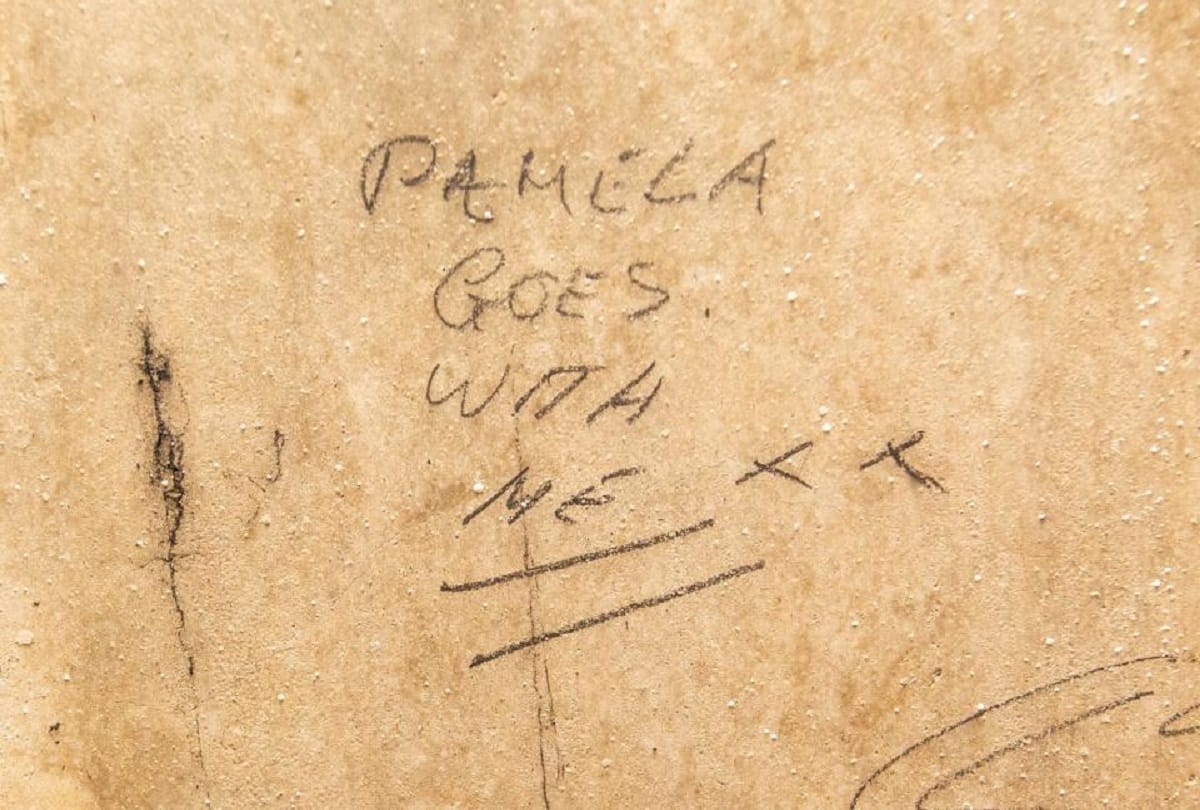 PAMELA
GOES.
WITH
ME X X